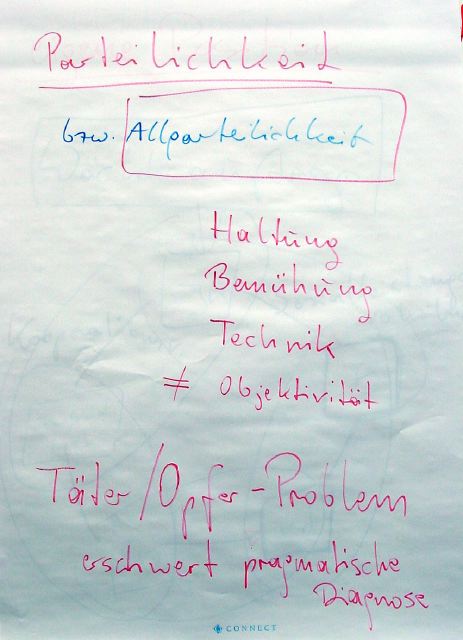 Parteilichkeit
bzw. Allparteilichkeit
Haltung
Bemühung
Technik
≠ Objektivität
Täter/Opfer-Problem
erschwert pragmatische
Diagnose
CONNECT